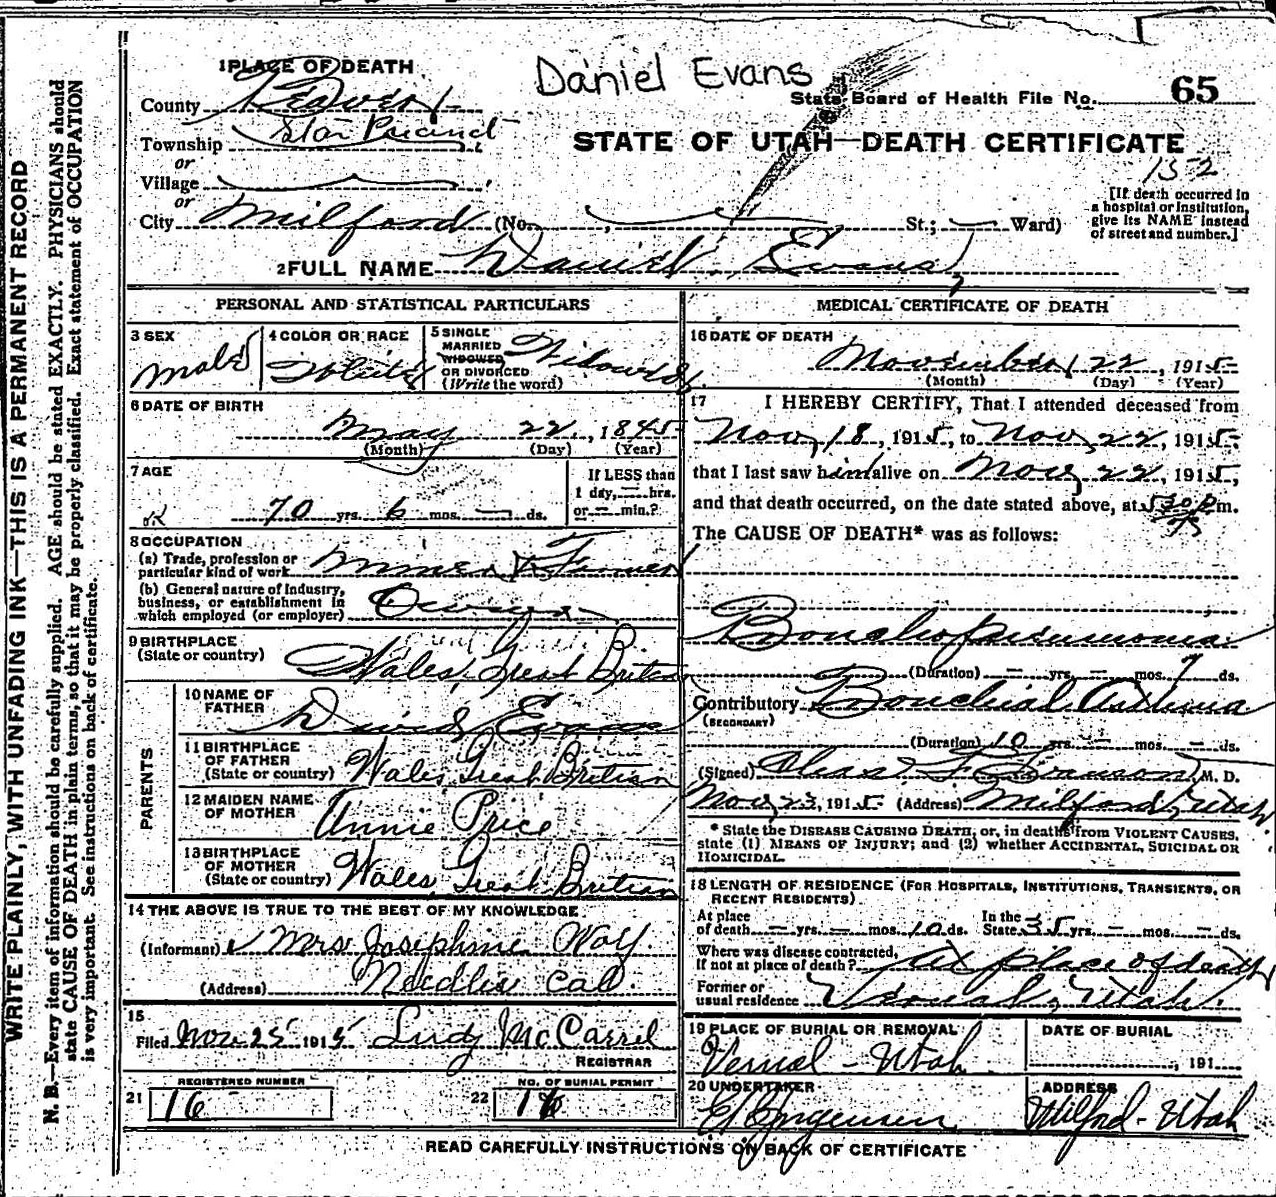 WRITE PLAINLY, WITH UNFADING INK—THIS IS A PERMANENT RECORD
N. B.—Every item of information should be carefully supplied. AGE should be stated EXACTLY. PHYSICIANS should
state CAUSE OF DEATH in plain terms, so that it may be properly classified. Exact statement of OCCUPATION
is very important. See instructions on back of certificate.
Daniel Evans
1 PLACE OF DEATH
County Beaver
State Board of Health File No. 65
Township Star Precinct
STATE OF UTAH—DEATH CERTIFICATE
152
or
Village
or
City Milford (No. St.; Ward)
[If death occurred in
a hospital or institution,
give its NAME instead
of street and number.]
2 FULL NAME Daniel Evans
PERSONAL AND STATISTICAL PARTICULARS
3 SEX
Male
4 COLOR OR RACE
White
5 SINGLE
MARRIED
WIDOWED
OR DIVORCED
(Write the word)
6 DATE OF BIRTH
May 22, 1845
(Month) (Day) (Year)
7 AGE
70 yrs. 6 mos. — ds.
If LESS than
1 day, — hrs.
or — min.?
OK
8 OCCUPATION
(a) Trade, profession or
particular kind of work Miner &
(b) General nature of industry,
business, or establishment in
which employed (or employer)
9 BIRTHPLACE
(State or country) Wales, Great Britian
PARENTS
10 NAME OF
FATHER David Evans
11 BIRTHPLACE
OF FATHER
(State or country) Wales, Great Britian
12 MAIDEN NAME
OF MOTHER Annie Price
13 BIRTHPLACE
OF MOTHER
(State or country) Wales, Great Britian
14 THE ABOVE IS TRUE TO THE BEST OF MY KNOWLEDGE
(Informant) Mrs Josephine Wolf
(Address) Needles Cal.
15
Filed Nov 25 1915 McCarrel
REGISTRAR
REGISTERED NUMBER
21 16
NO. OF BURIAL PERMIT
22 16
MEDICAL CERTIFICATE OF DEATH
16 DATE OF DEATH
November 22, 1915
(Month) (Day) (Year)
17 I HEREBY CERTIFY, That I attended deceased from
Nov, 18, 1915, to Nov, 22, 1915,
that I last saw him alive on Nov, 22, 1915,
and that death occurred, on the date stated above, at 5:30 p m.
The CAUSE OF DEATH* was as follows:
Bronchopneumonia
(Duration) — yrs. — mos. 7 ds.
Contributory Bronchial Asthma
(SECONDARY)
(Duration) 10 yrs. — mos. — ds.
(Signed) M. D.
Nov, 23, 1915 (Address) Milford, Utah.
* State the DISEASE CAUSING DEATH, or, in deaths from VIOLENT CAUSES,
state (1) MEANS OF INJURY; and (2) whether ACCIDENTAL, SUICIDAL OR
HOMICIDAL.
18 LENGTH OF RESIDENCE (FOR HOSPITALS, INSTITUTIONS, TRANSIENTS, OR
RECENT RESIDENTS)
At place
of death — yrs. — mos. 10 ds.
In the
State 35 yrs. — mos. — ds.
Where was disease contracted,
if not at place of death? At place of death
Former or
usual residence Vernal, Utah.
19 PLACE OF BURIAL OR REMOVAL
Vernal - Utah
DATE OF BURIAL
, 191
20 UNDERTAKER
Jorgensen
ADDRESS
Milford - Utah
READ CAREFULLY INSTRUCTIONS ON BACK OF CERTIFICATE